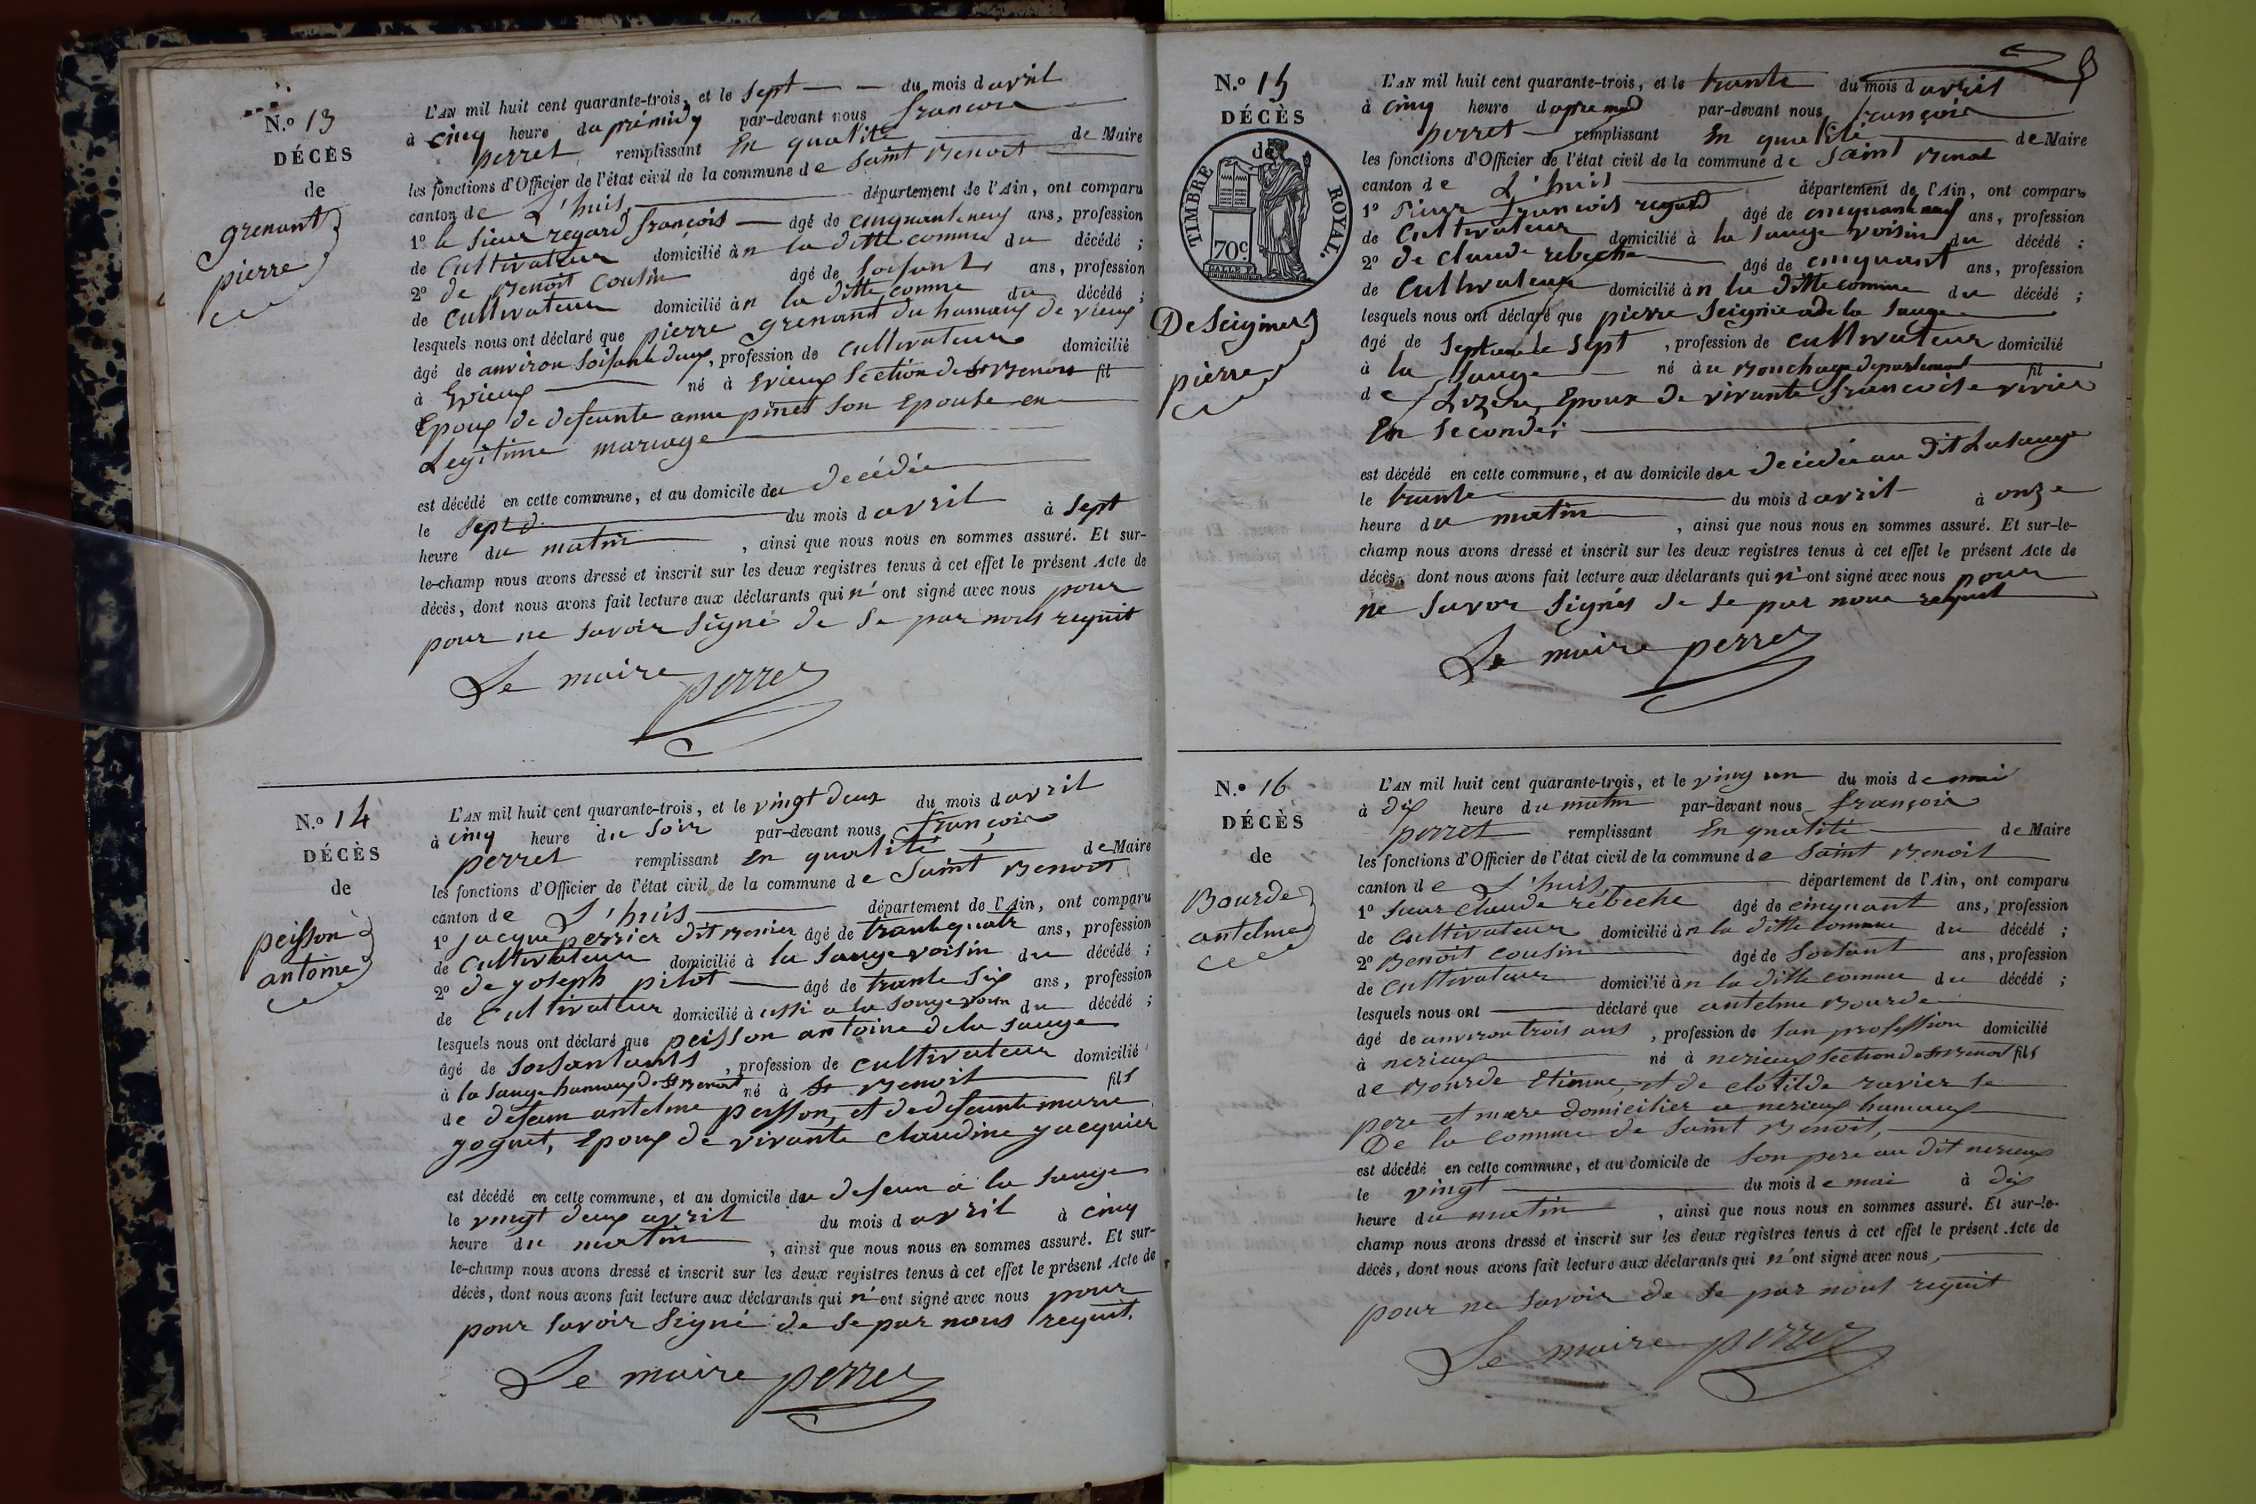 N.º 13
DÉCÈS
de
grenant
pierre
L'AN mil huit cent quarante-trois, et le sept du mois d avril
à cinq heure du prémidy par-devant nous francois
perret remplissant En qualité de Maire
les fonctions d'Officier de l'état civil de la commune de Saint Benoit
canton de L'huis département de l'Ain, ont comparu
1º le sieur regard françois âgé de cinquanteneuf ans, profession
de Cultivateur domicilié à n la ditte commune du décédé ;
2º de Benoit Cousin âgé de soisante ans, profession
de cultivateur domicilié à n la ditte comme du décédé ;
lesquels nous ont déclaré que pierre grenant du hamaux de
âgé de anviron soisante deux, profession de cultivateur domicilié
à Evieux né à Evieux Section de St Benoit fil
Epoux de defeunte anne pinet son Epouse en
Legitime mariage
est décédé en cette commune, et au domicile du decédée
le sept du mois d avril à sept
heure du matin , ainsi que nous nous en sommes assuré. Et sur-
le-champ nous avons dressé et inscrit sur les deux registres tenus à cet effet le présent Acte de
décès, dont nous avons fait lecture aux déclarants qui n' ont signé avec nous pour
pour ne savoir signé de se par nous requit
Le maire perret
N.º 14
DÉCÈS
de
peisson
antoine
L'AN mil huit cent quarante-trois, et le vingt deux du mois d avril
à cinq heure du soir par-devant nous françois
perret remplissant En qualité de Maire
les fonctions d'Officier de l'état civil de la commune de Saint Benoit
canton de L'huis département de l'Ain, ont comparu
1º jacque perrier dit Benier âgé de trantequatr ans, profession
de cultivateur domicilié à la sauge voisin du décédé ;
2º de joseph pilot âgé de trante six ans, profession
de Cultivateur domicilié à ussi a la sauge voisin du décédé ;
lesquels nous ont déclaré que peisson antoine de la sauge
âgé de soisantants , profession de cultivateur domicilié
à la sauge hamaux de St Benoit né à St Benoit fils
de defeun antelme peisson, et de defeunte marie
joguet, Epoux de vivante claudine jacquier
est décédé en cette commune, et au domicile du defeun a la sauge
le vingt deux avril du mois d avril à cinq
heure du matin , ainsi que nous nous en sommes assuré. Et sur-
le-champ nous avons dressé et inscrit sur les deux registres tenus à cet effet le présent Acte de
décès, dont nous avons fait lecture aux déclarants qui n' ont signé avec nous pour
pour savoir signé de se par nous requit.
Le maire perret
N.º 15
DÉCÈS
de
TIMBRE ROYAL.
70 c
De Seigner
pierre
L'AN mil huit cent quarante-trois, et le trante du mois d avril
à cinq heure d par-devant nous françois
perret remplissant En qualité de Maire
les fonctions d'Officier de l'état civil de la commune de Saint Benoit
canton de L'huis département de l'Ain, ont comparu
1º Sieur francois regard âgé de cinquante neuf ans, profession
de Cultivateur domicilié à la sauge voisin du décédé ;
2º de claude rebeche âgé de cinquant ans, profession
de Cultivateur domicilié à n la ditte commune du décédé ;
lesquels nous ont déclaré que pierre de la sauge
âgé de septante sept , profession de cultivateur domicilié
à la sauge né à u Bouchage departement fil
de Lizere, Epoux de vivante francoise vivier
En seconde;
est décédé en cette commune, et au domicile du decédée au dit La sauge
le trante du mois d avril à onze
heure du matin , ainsi que nous nous en sommes assuré. Et sur-le-
champ nous avons dressé et inscrit sur les deux registres tenus à cet effet le présent Acte de
décès, dont nous avons fait lecture aux déclarants qui n' ont signé avec nous pour
ne savor signés de se par nous requit
Le maire perret
N.º 16
DÉCÈS
de
Bourde
antelme
L'AN mil huit cent quarante-trois, et le ving un du mois de mai
à dix heure du matin par-devant nous françois
perret remplissant En qualité de Maire
les fonctions d'Officier de l'état civil de la commune de Saint Benoit
canton de L'huis département de l'Ain, ont comparu
1º sieur claude rebeche âgé de cinquant ans, profession
de cultivateur domicilié à n la ditte commune du décédé ;
2º Benoit cousin âgé de soisant ans, profession
de cultivateur domicilié à n la ditte commune du décédé ;
lesquels nous ont déclaré que antelme Bourde
âgé de anviron trois ans , profession de san profession domicilié
à nerieux né à nerieux section de St Benoit fils
de Bourde Etienne, et de clotilde ravier se
pere et mere domicilier a nerieux hamaux
De la commune de Saint Benoit,
est décédé en cette commune, et au domicile de son pere au dit nerieux
le vingt du mois de mai à dix
heure du matin , ainsi que nous nous en sommes assuré. Et sur-le-
champ nous avons dressé et inscrit sur les deux registres tenus à cet effet le présent Acte de
décès, dont nous avons fait lecture aux déclarants qui n' ont signé avec nous
pour ne savoir de se par nous requit
Le maire perret